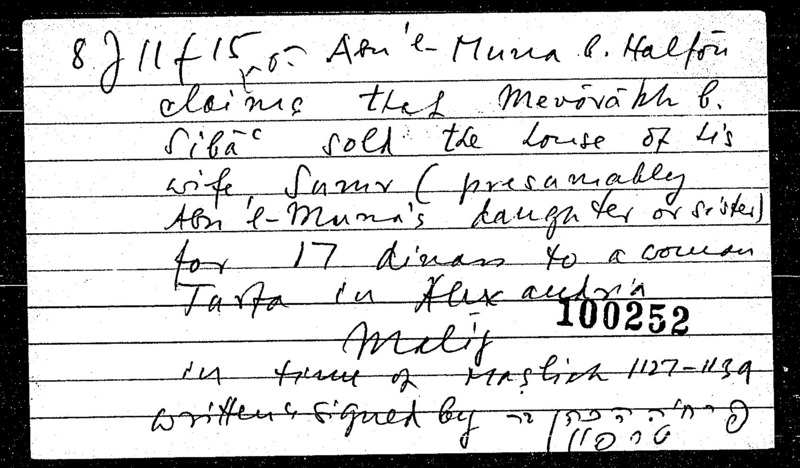 8 J 11 f 15 ro. Abu 'l-Muna b. Halfōn
claims that Mevōrākh b.
Sibāʿ sold the house of his
wife, Surur (presumably
Abu 'l-Muna's daughter or sister)
for 17 dinars to a woman
Tarfa in Alexandria
100252
Malij
in time of Maṣliaḥ 1127-1139
written & signed by פרחיה הכהן
טרפון